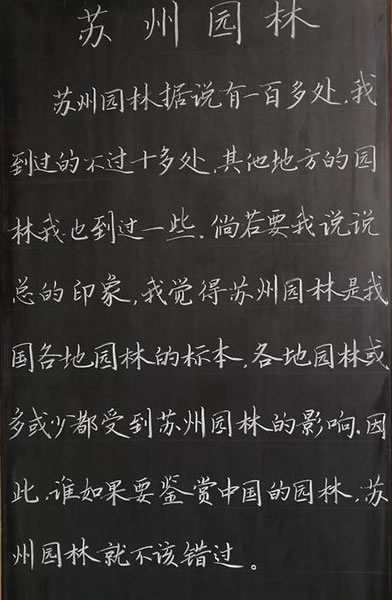 苏州园林
苏州园林据说有一百多处,我
到过的不过十多处,其他地方的园
林我也到过一些.倘若要我说说
总的印象,我觉得苏州园林是我
国各地园林的标本,各地园林或
多或少都受到苏州园林的影响.因
此,谁如果要鉴赏中国的园林,苏
州园林就不该错过。